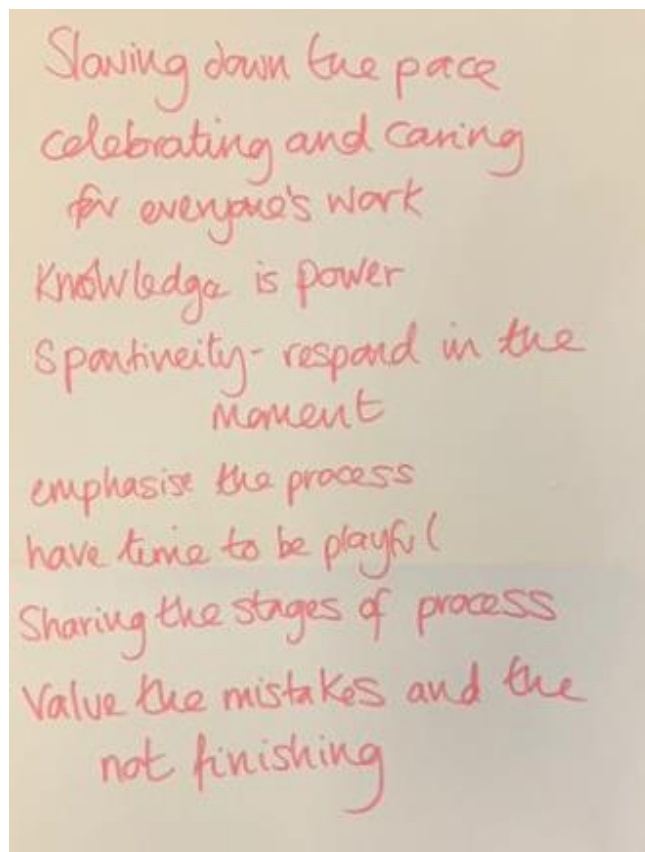 Slowing down the pace
celebrating and caring
for everyone's work
Knowledge is power
Spontineity - respond in the
moment
emphasise the process
have time to be playful
Sharing the stages of process
Value the mistakes and the
not finishing